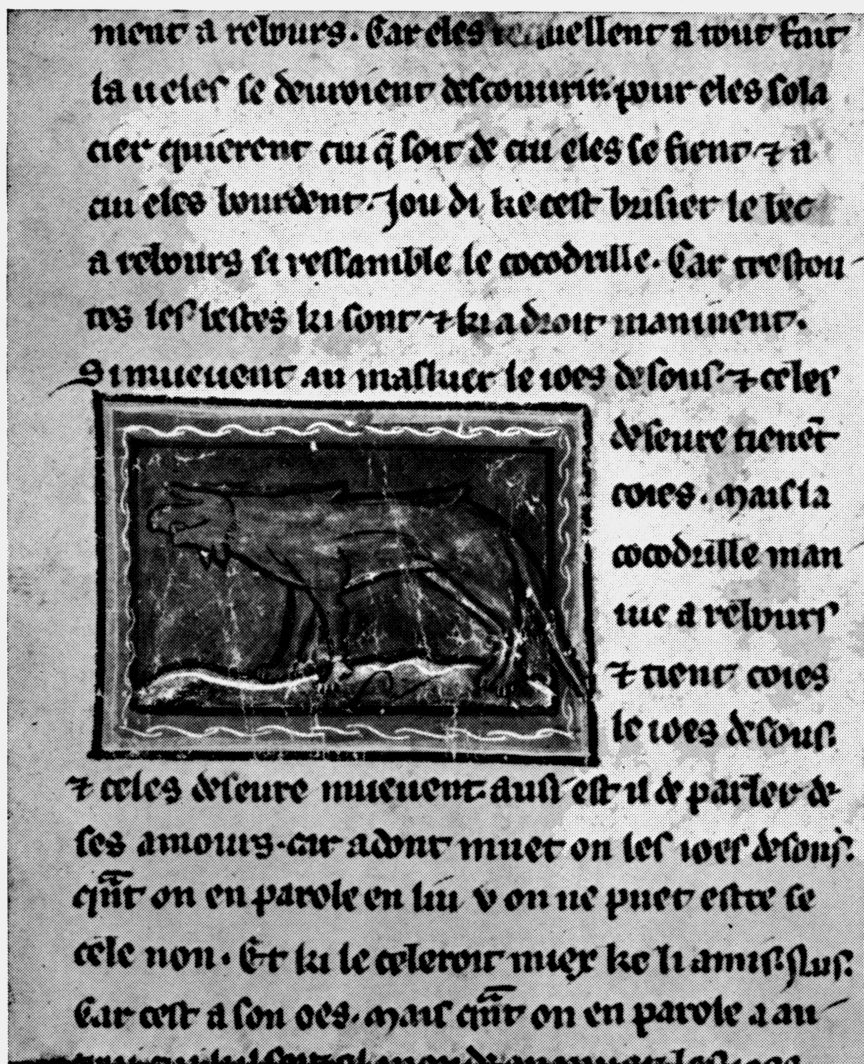 ment a rebours. Car eles requellent a tout fait
la u eles se deuroient descouurir. pour eles sola
cier quierent cui q̄ soit de cui eles se fient ⁊ a
cui eles bourdent. Jou di ke cest brisier le bec
a rebours si ressamble le cocodrille. Car trestou
tes les bestes ki sont ⁊ ki a droit maniuent.
Si mueuent au maskier le ioes desous. ⁊ celes
deseure tienēt
coies. mais la
cocodrille man
iue a rebours
⁊ tient coies
le ioes desous.
⁊ celes deseure mueuent. ausi est il de parler de
ses amours. car adont muet on les ioes desous.
qn̄t on en parole en liu v on ne puet estre se
cele non. Et ki le celeroit miex ke li amis. plus.
Car cest a son oes. mais qn̄t on en parole a au